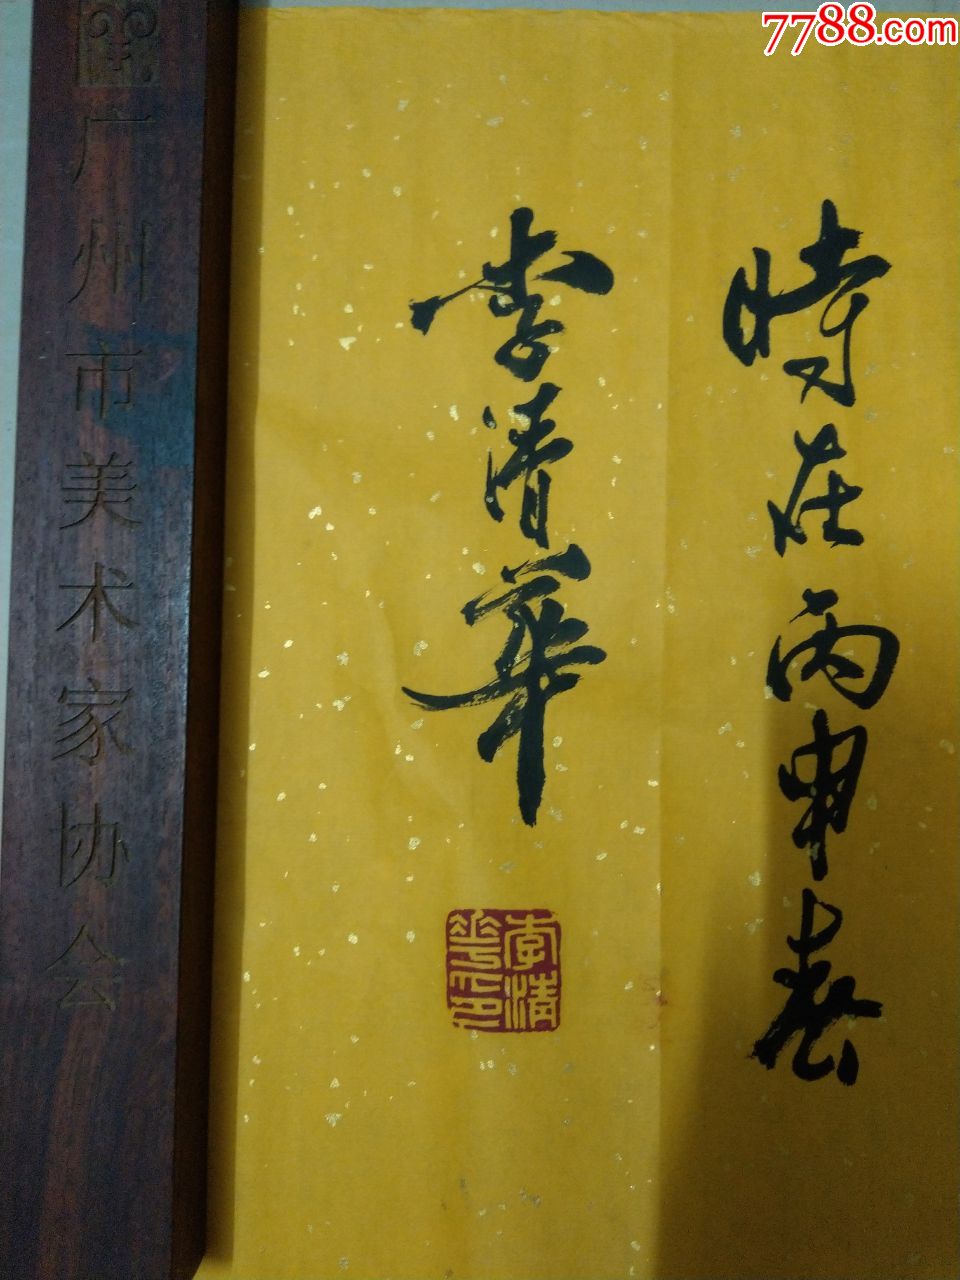 7788.com
時在丙申春
李清華
李清華印
广州市美术家协会